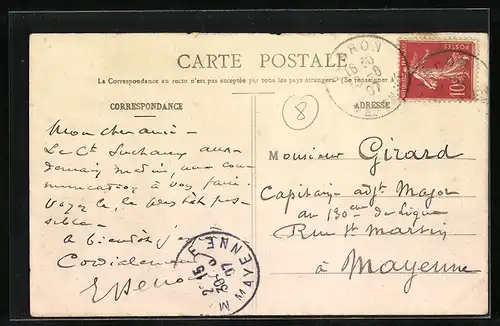 CARTE POSTALE
La Correspondance au recto n'est pas acceptée par tous les pays étrangers. (Se renseigner
CORRESPONDANCE
ADRESSE
8
RON
POSTES
10
Mon cher ami -
Le Ct Suchaux aura
demain matin, une com-
munication à vous faire.
Voyez le, le plus tôt pos-
sible -
A bientôt j'
Cordialement
Monsieur Girard
Capitaine adjt Major
au 130eme de Ligne
Rue St Martin
à Mayenne
MAYENNE
2e 15
30
07